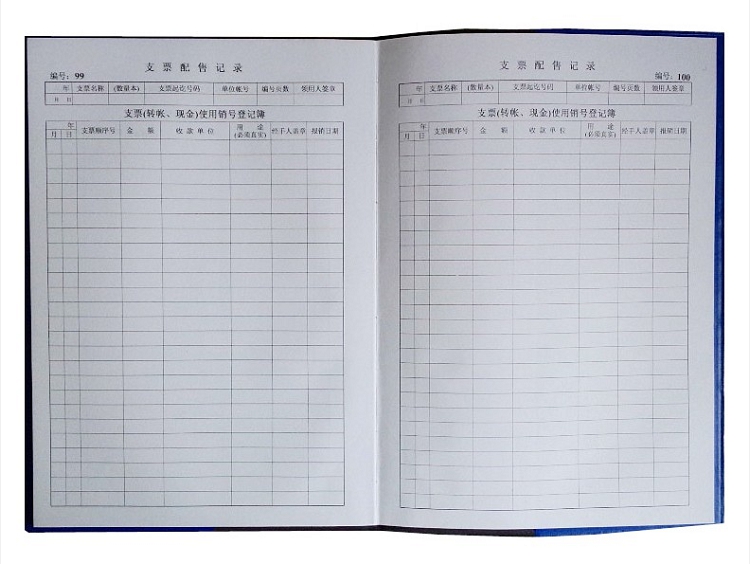 支票配售记录
编号：99
年 支票名称 (数量本) 支票起讫号码 单位帐号 编号页数 领用人签章
月 日
支票(转帐、现金)使用销号登记簿
年 支票顺序号 金额 收款单位 用途 经手人盖章 报销日期
月 日 (必须真实)
支票配售记录
编号：100
年 支票名称 (数量本) 支票起讫号码 单位帐号 编号页数 领用人签章
月 日
支票(转帐、现金)使用销号登记簿
年 支票顺序号 金额 收款单位 用途 经手人盖章 报销日期
月 日 (必须真实)